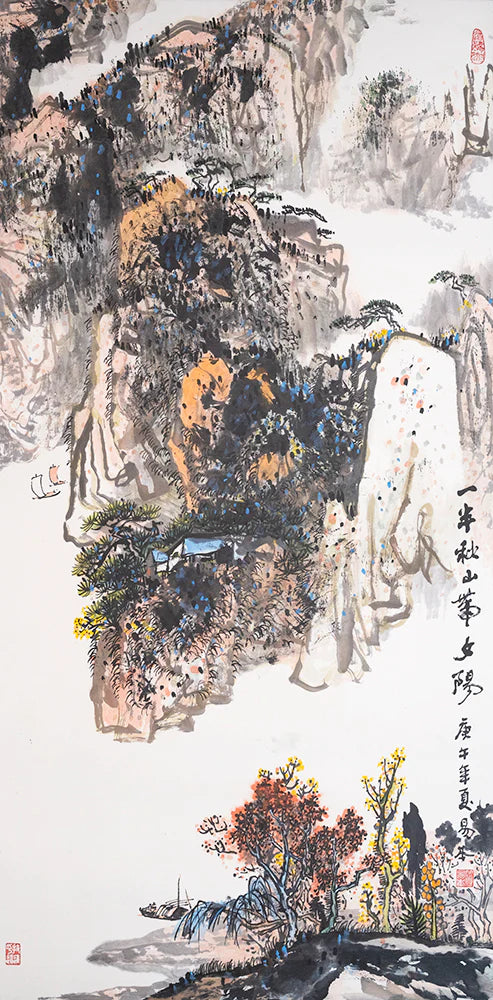 一半秋山带夕陽
庚午年夏易